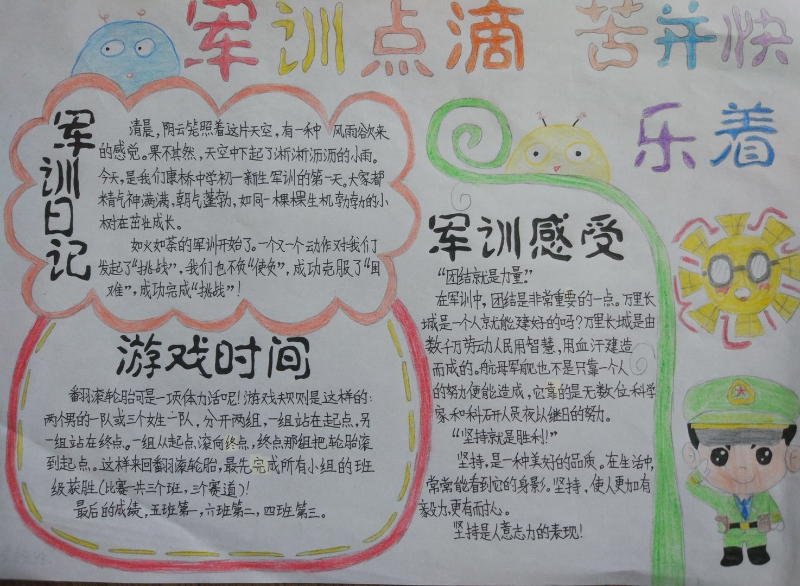 军训点滴 苦并快
乐着
军训日记
清晨，阴云笼照着这片天空，有一种 风雨欲来
的感觉。果不其然，天空中下起了淅淅沥沥的小雨。
今天，是我们康桥中学初一新生军训的第一天。大家都
精气神满满，朝气蓬勃，如同一棵棵生机勃勃的小
树在茁壮成长。
如火如荼的军训开始了。一个又一个动作对我们
发起了“挑战”，我们也不负“使负”，成功克服了“困
难”，成功完成“挑战”！
游戏时间
翻滚轮胎可是一项体力活呢！游戏规则是这样的：
两个男的一队或三个女生一队，分开两组，一组站在起点，另
一组站在终点。一组从起点滚向终点，终点那组把轮胎滚
到起点。这样来回翻滚轮胎，最先完成所有小组的班
级获胜（比赛一共三个班，三个赛道）！
最后的成绩，五班第一，六班第二，四班第三。
军训感受
“团结就是力量。”
在军训中，团结是非常重要的一点。万里长
城是一个人就能建好的吗？万里长城是由
数千万劳动人民用智慧，用血汗建造
而成的。航母军舰也不是只靠一个人
的努力便能造成，它靠的是无数位科学
家和科研人员夜以继日的努力。
“坚持就是胜利！”
坚持，是一种美好的品质。在生活中，
常常能看到它的身影。坚持，使人更加有
毅力，更有耐心。
坚持是人意志力的表现！